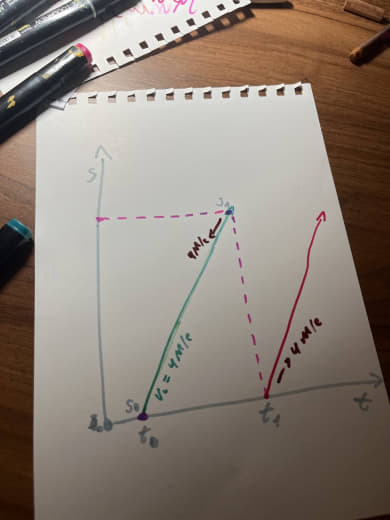 S
S₁
4 м/c
V₀ = 4 м/c
→ 4 м/c
S₀
t₀
t₁
t